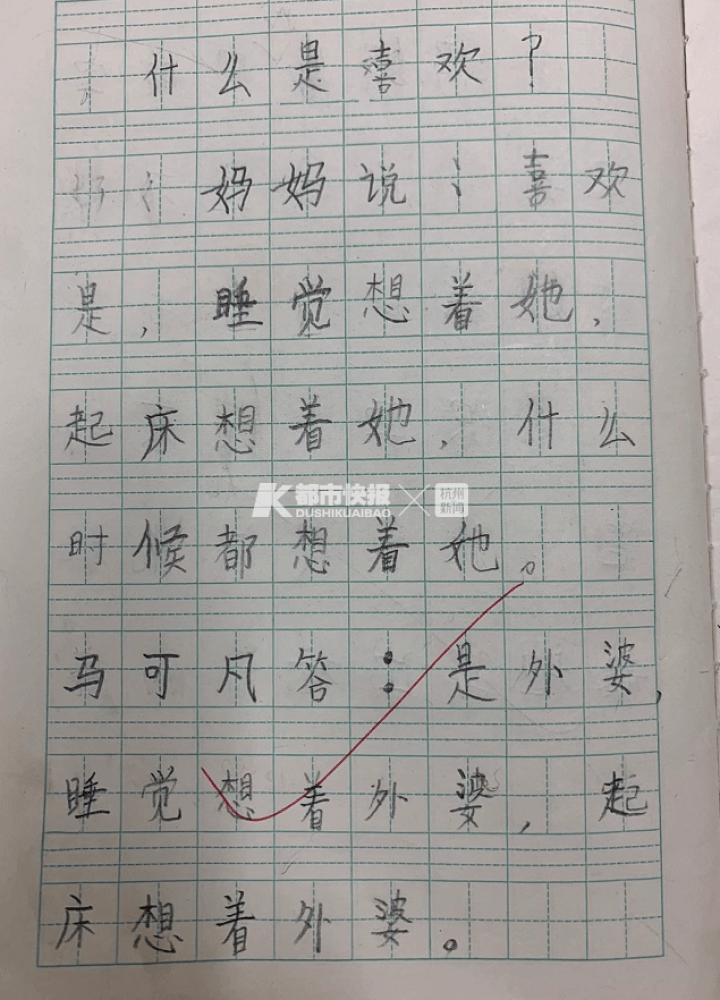 什么是喜欢？
妈妈说：喜欢
是，睡觉想着她，
起床想着她，什么
K都市快报 DUSHIKUAIBAO × 杭州新闻
时候都想着她。
马可凡答：是外婆，
睡觉想着外婆，起
床想着外婆。